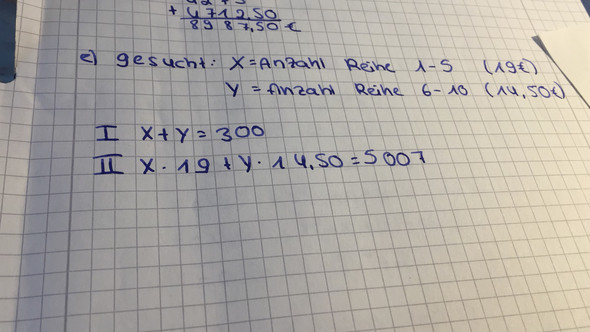 + 4712,50
8987,50€
c) gesucht: X=Anzahl Reihe 1-5 (19€)
Y = Anzahl Reihe 6-10 (14,50€)
I X+Y=300
II X·19+Y·14,50=5007